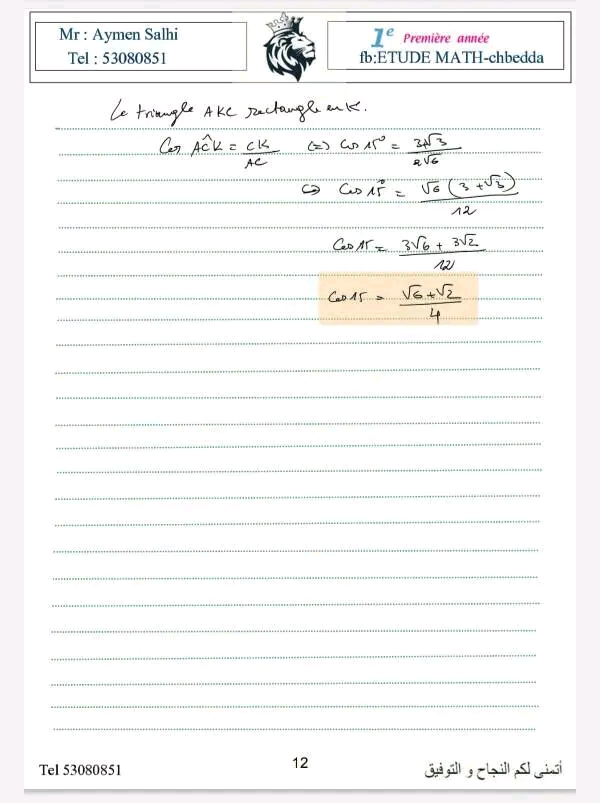 Mr : Aymen Salhi
Tel : 53080851
1e Première année
fb:ETUDE MATH-chbedda
Le triangle AKC rectangle en K.
Cos AĈK = CK/AC (=) Cos 15° = 3+√3/2√6
⇔ Cos 15° = √6(3+√3)/12
Cos 15 = 3√6 + 3√2/12
Cos 15 = √6+√2/4
Tel 53080851
12
أتمنى لكم النجاح و التوفيق